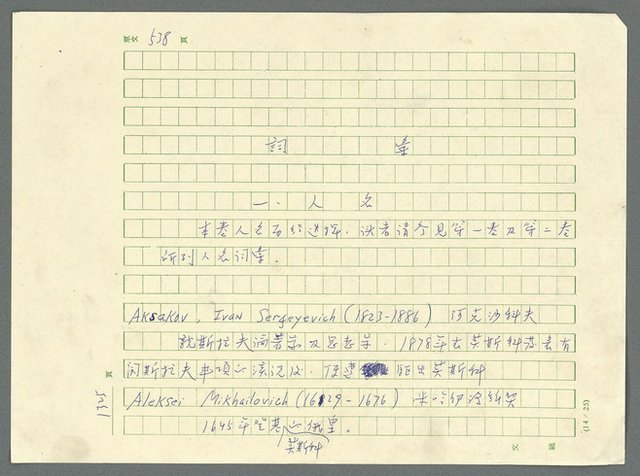 原文 538 頁
詞 彙
一、人 名
本卷人名而经选择，讀者请参见第一卷及第二卷
所列人名詞彙。
Aksakov, Ivan Sergeyevich (1823-1886) 阿克沙科夫
斯拉夫 及思想家，1878年在莫斯科发表有
関斯拉夫事項的演说後，便遭 駆出莫斯科
Aleksei Mikhailovich (1629-1676) 米哈伊洛维契
1645年登基的俄皇。
莫斯科
頁 1325
文 稿
(14/25)